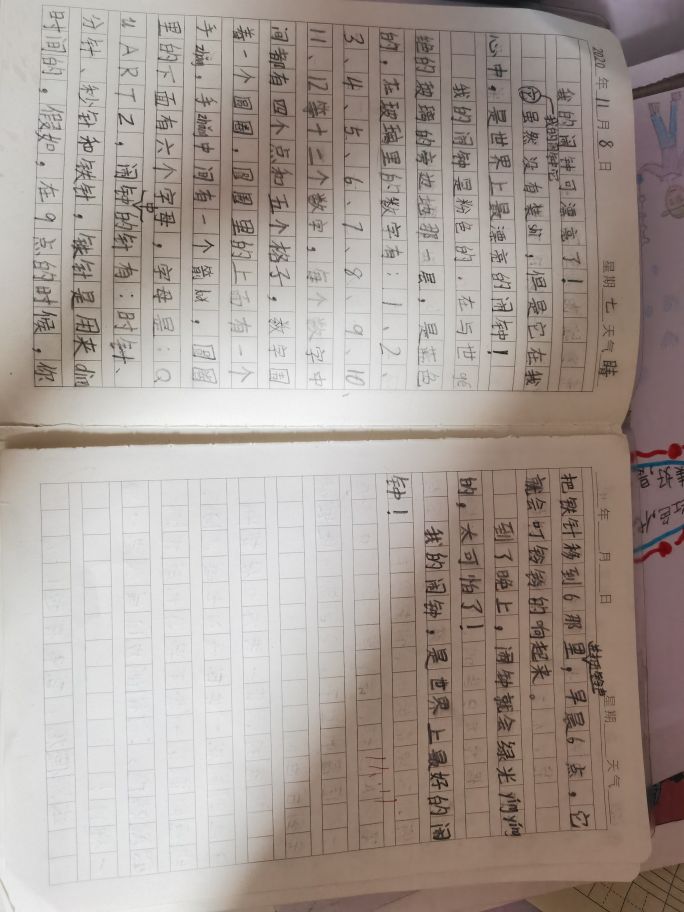 2020年11月8日 星期七 天气晴
我的闹钟可漂亮了!
我的闹钟
虽然没有某shì,但是它在我
心中,是世界上最漂亮的闹钟!
我的闹钟是粉色的,在与世gé
绝的玻璃的旁边边那一层,是蓝色
的,在玻璃里的数字有:1、2、
3、4、5、6、7、8、9、10
11、12等十二个数字,每个数字中
间都有四个点和五个格子,数字围
着一个圆圈,圆圈里的上面有一个
里的下面有六个字母,字母是:Q
UARTZ,闹钟的针有:时针、
中
分针、秒针和铁针,铁针是用来dìn
时间的,假如,在9点的时候,你
年 月 日 星期 天气
把铁针移到6那里,早晨6点,它
就会叮铃铃的响起来。
到了晚上,闹钟就会绿米yīngyīng
的,太可怕了!
我的闹钟,是世界上最好的闹
钟!